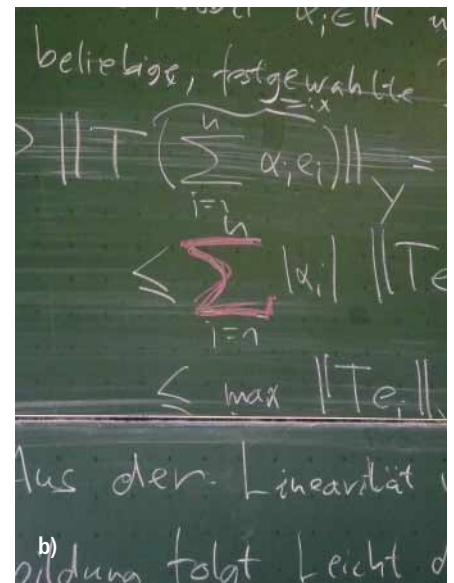 α_i ∈ ℝ
beliebige, festgewählte
=: x
‖T(∑_{i=1}^{n} α_i e_i)‖_Y =
≤ ∑_{i=1}^{n} |α_i| ‖Te
≤ max ‖Te_i‖
Aus der Linearität
b)
bildung folgt leicht d